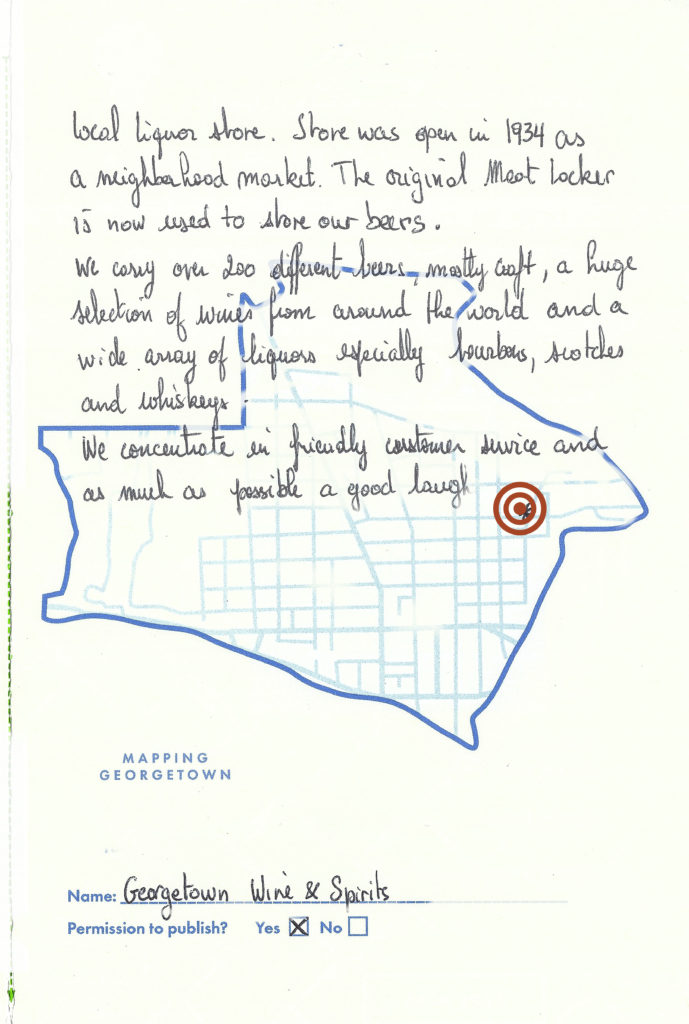 local liquor store. Store was open in 1934 as
a neighborhood market. The original Meat Locker
is now used to store our beers.
We carry over 200 different beers, mostly craft, a huge
selection of wines from around the world and a
wide array of liquors especially bourbons, scotches
and whiskeys.
We concentrate in friendly customer service and
as much as possible a good laugh
MAPPING
GEORGETOWN
Name: Georgetown Wine & Spirits
Permission to publish? Yes No